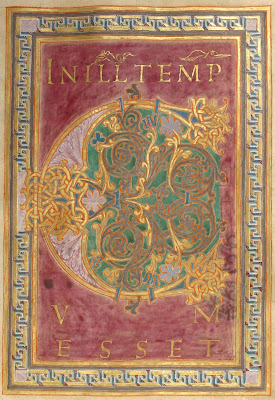 INILLTEMP
C
V M
ESSET